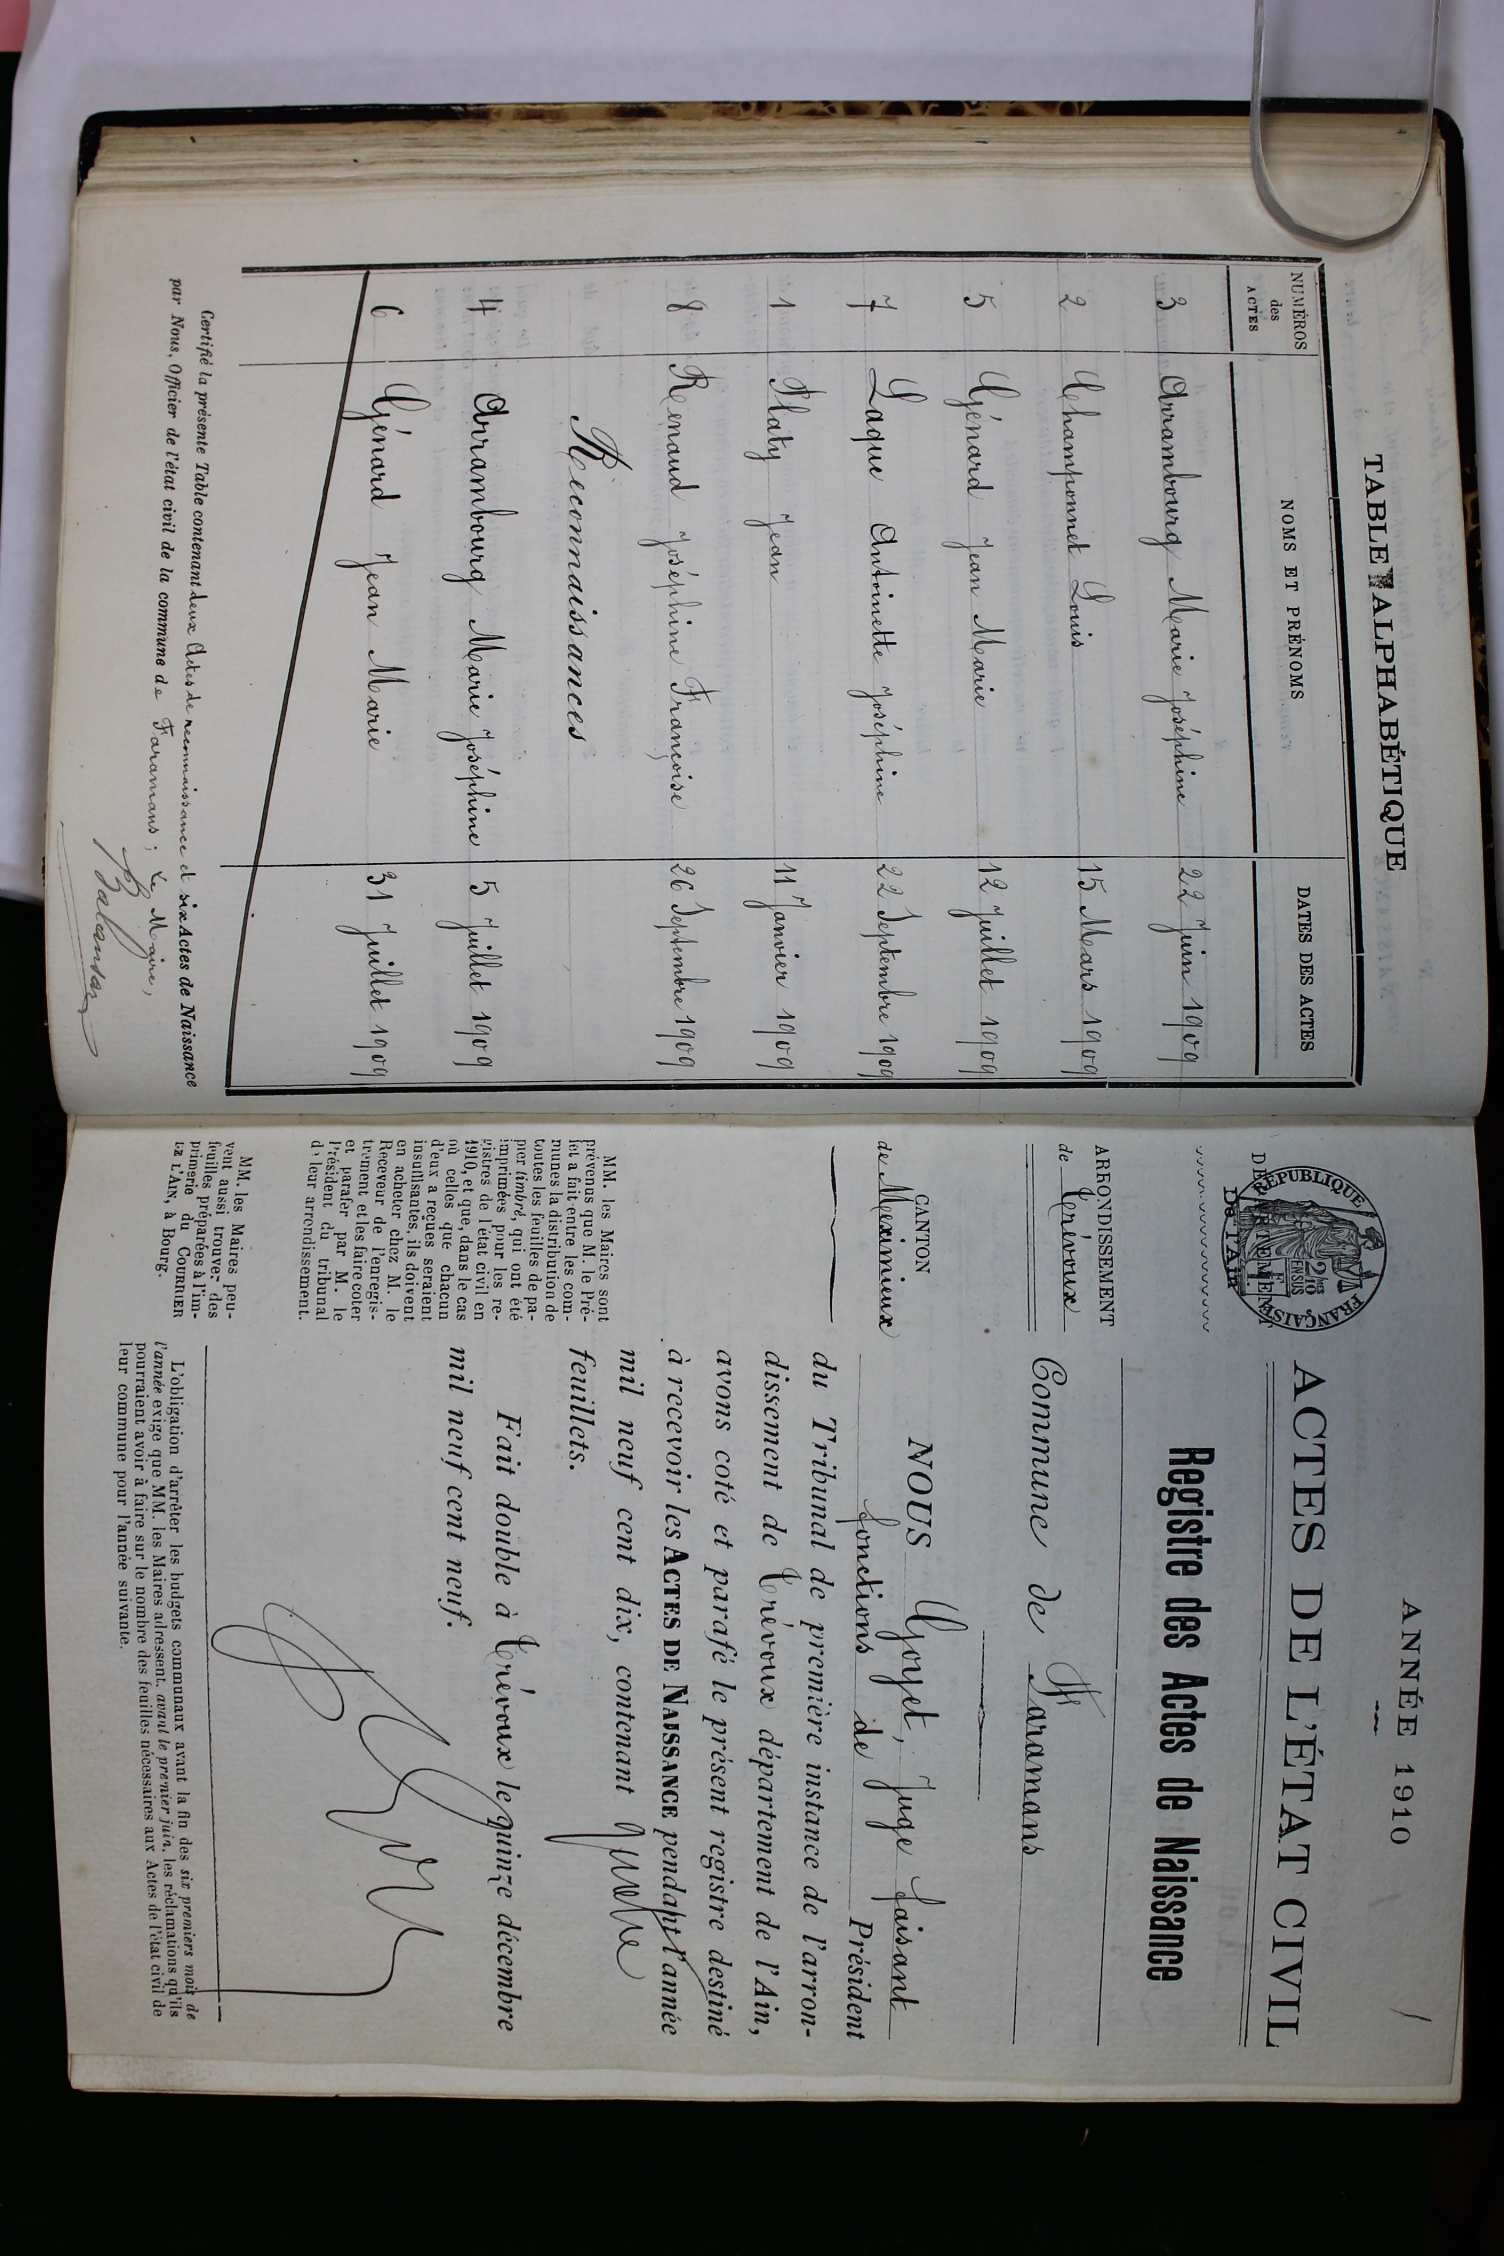 TABLE ALPHABÉTIQUE
NUMÉROS des ACTES NOMS ET PRÉNOMS DATES DES ACTES
3 Arrambourg Marie Joséphine 22 Juin 1909
2 Champonnet Louis 15 Mars 1909
5 Génard Jean Marie 12 Juillet 1909
7 Laque Antoinette Joséphine 22 Septembre 1909
1 Platy Jean 11 Janvier 1909
8 Renaud Joséphine Françoise 26 Septembre 1909
Reconnaissances
4 Arrambourg Marie Joséphine 5 Juillet 1909
6 Génard Jean Marie 31 Juillet 1909
Certifié la présente Table contenant deux Actes de reconnaissance et six Actes de Naissance
par Nous, Officier de l'état civil de la commune de Faramans ; Le Maire,
ANNÉE 1910
ACTES DE L'ÉTAT CIVIL
Registre des Actes de Naissance
RÉPUBLIQUE FRANÇAISE
DÉPARTEMENT
De l'Ain
ARRONDISSEMENT
de Trévoux
CANTON
de Meximieux
MM. les Maires sont
prévenus que M. le Pré-
fet a fait entre les com-
munes la distribution de
toutes les feuilles de pa-
pier timbré, qui ont été
imprimées pour les re-
gistres de l'état civil en
1910, et que, dans le cas
où celles que chacun
d'eux a reçues seraient
insuffisantes, ils doivent
en acheter chez M. le
Receveur de l'enregis-
trement et les faire coter
et parafer par M. le
Président du tribunal
de leur arrondissement.
MM. les Maires peu-
vent aussi trouver des
feuilles préparées à l'im-
primerie du COURRIER
DE L'AIN, à Bourg.
Commune de Faramans
NOUS Goyet, Juge faisant
fonctions de Président
du Tribunal de première instance de l'arron-
dissement de Trévoux département de l'Ain,
avons coté et parafé le présent registre destiné
à recevoir les ACTES DE NAISSANCE pendant l'année
mil neuf cent dix, contenant
feuillets.
Fait double à Trévoux le quinze décembre
mil neuf cent neuf.
L'obligation d'arrêter les budgets communaux avant la fin des six premiers mois de
l'année exige que MM. les Maires adressent, avant le premier juin, les réclamations qu'ils
pourraient avoir à faire sur le nombre des feuilles nécessaires aux Actes de l'état civil de
leur commune pour l'année suivante.